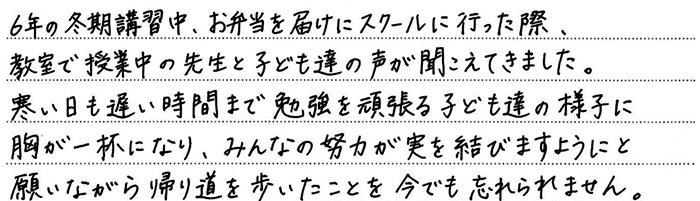 6年の冬期講習中、お弁当を届けにスクールに行った際、
教室で授業中の先生と子ども達の声が聞こえてきました。
寒い日も遅い時間まで勉強を頑張る子ども達の様子に
胸が一杯になり、みんなの努力が実を結びますようにと
願いながら帰り道を歩いたことを今でも忘れられません。